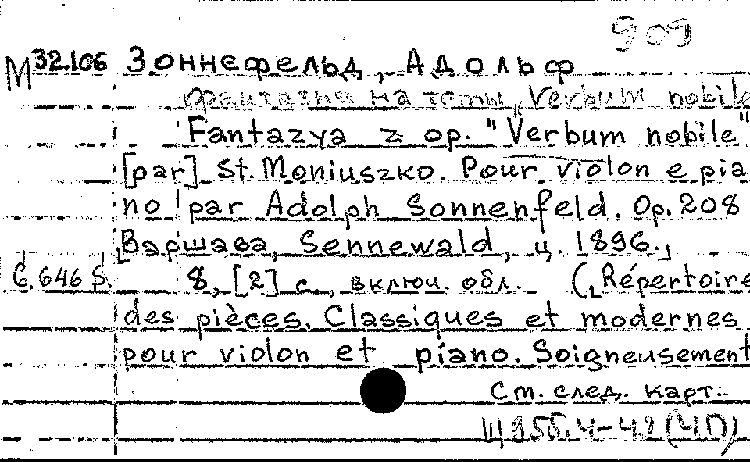 909
M 32.106 Зоннефельд, Адольф
фантазия на темы „Verbum nobile
Fantazya z op. "Verbum nobile"
[par] St. Moniuszko. Pour violon e pia
no par Adolph Sonnenfeld. Op. 208
Варшава, Sennewald, ц. 1896.,
C. 646 S. 8, [2] с., включ. обл. („Répertoire
des pièces. Classiques et modernes
pour violon et piano. Soigneusement
См. след. карт.